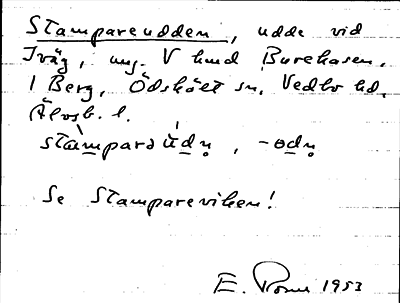 Stampareudden, udde vid
Iväg, ung. V hmd Burehasen.
1 Berg, Ödskölt sn, Vedbo hd,
Älvsb. l.
stàmparəúdn̥, -odn̥
Se Stampareviken!
E. 1953